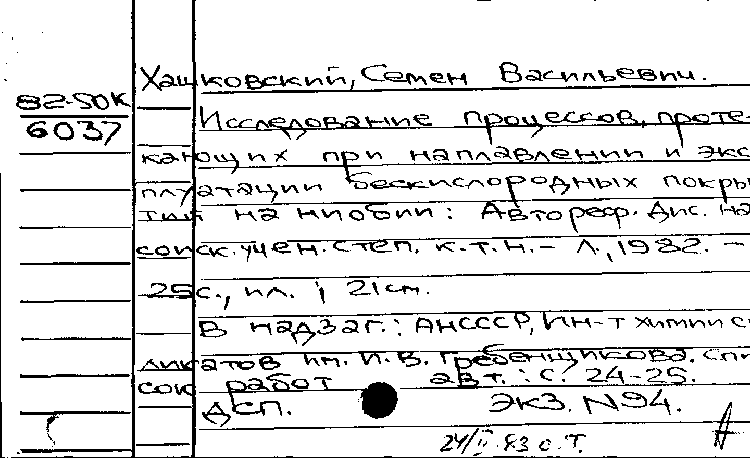 Хашковский, Семен Васильевич.
82-50К
6037
Исследование процессов, проте-
кающих при наплавлении и экс
плуатации бескислородных покры
тий на ниобии: Автореф. Дис. на
соиск. учен. степ. к.т.н. - Л., 1982. -
25с., ил. ; 21см.
В надзаг.: АНСССР, Ин-т химии си
ликатов им. И. В. Гребенщикова. Спи
сок работ авт.: с. 24-25.
ДСП. ЭКЗ. N94.
24/II-83 О.Т.